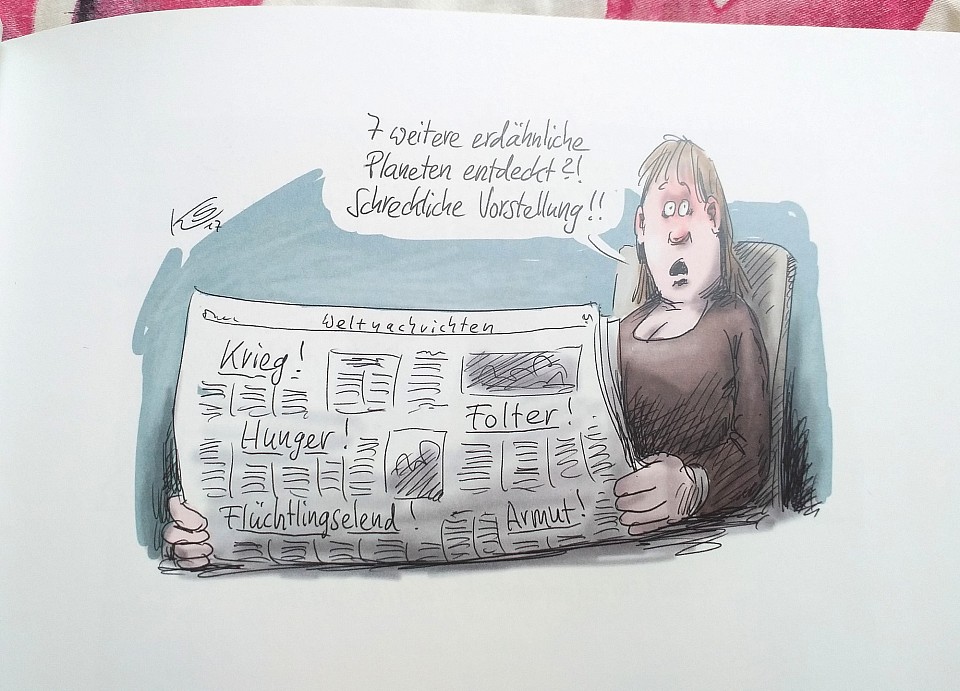 7 weitere erdähnliche
Planeten entdeckt?!
Schreckliche Vorstellung!!
17
Weltnachrichten
Krieg!
Folter!
Hunger!
Flüchtlingselend!
Armut!